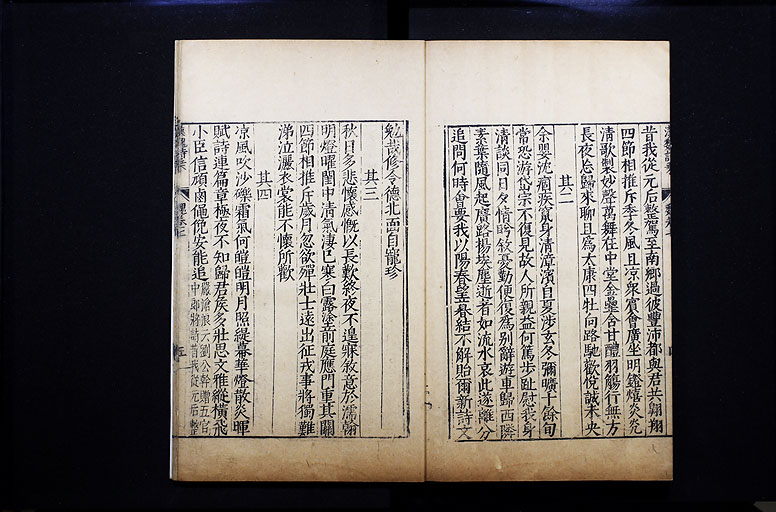 昔我從元后整駕至南鄉過彼豐沛都與君共翺翔
四節相推斥季冬風且凉衆賔會廣坐明鐙熺炎光
清歌製妙聲萬舞在中堂金罍含甘醴羽觴行無方
長夜忘歸來聊且爲太康四牡向路馳歡悅誠未央
其二
余嬰沈痼疾竄身清漳濱自夏涉玄冬彌曠十餘旬
常恐游岱宗不復見故人所親益何篤步趾慰我身
清談同日夕情盻敘憂勤便復爲别辭遊車歸西隣
素葉隨風起廣路揚埃塵逝者如流水哀此遂離分
追問何時會要我以陽春望慕結不解貽爾新詩文
勉哉修令德北面自寵珍
其三
秋日多悲懷感慨以長歎終夜不遑寐敘意於濡翰
明燈曜閨中清氣淒已寒白露塗前庭應門重其關
四節相推斥歲月忽欲殫壯士遠出征戎事將獨難
涕泣灑衣裳能不懷所歡
其四
凉風吹沙礫霜氣何皚皚明月照緹幕華燈散炎暉
賦詩連篇章極夜不知歸君侯多壯思文雅縱横飛
小臣信頑鹵僶俛安能追
嚴滄浪云劉公幹贈五官
中郎將詩昔我從元后整